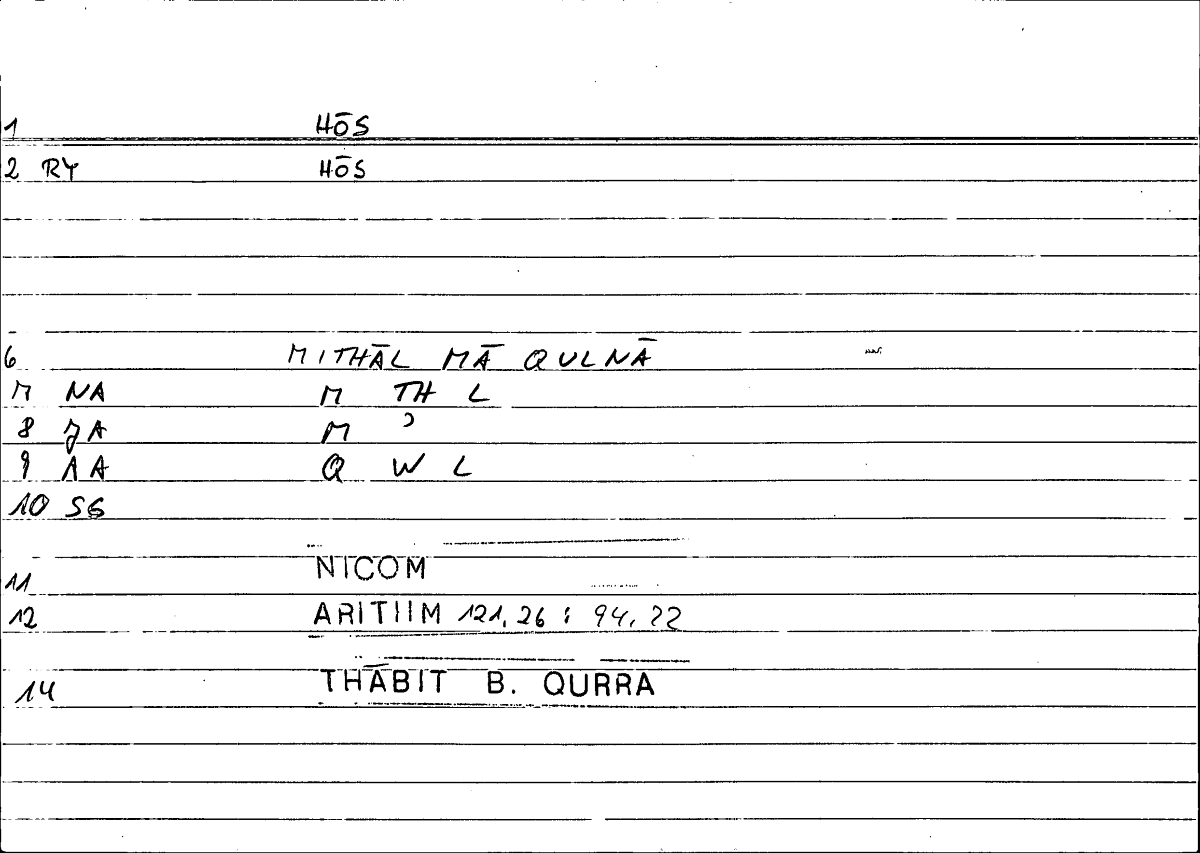 1 HŌS
2 RY HŌS
6 MITHĀL MĀ QULNĀ
7 NA M TH L
8 JA M ʾ
9 AA Q W L
10 SG
11 NICOM
12 ARITIIM 121,26 : 94,22
14 THĀBIT B. QURRA